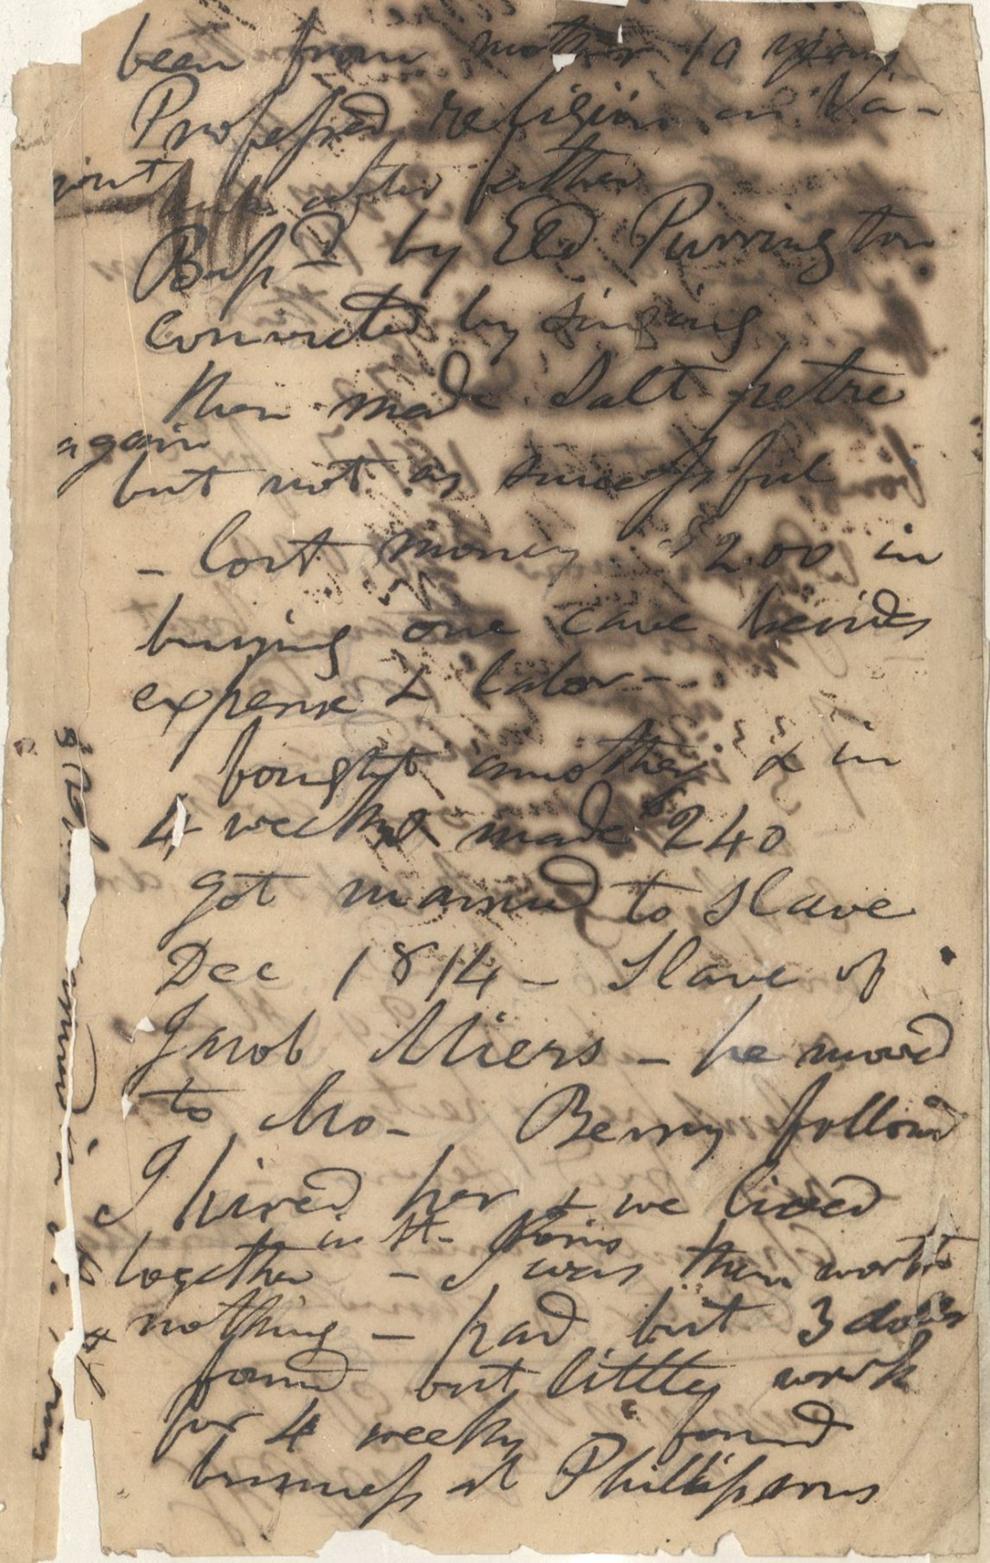 been from mother 10 years
Professed religion in Va -
just after father
Bap^d by Eld Purrington
convicted by singing
then made Salt petre
again
but not as successful
- lost money $200 in
buying one cave besides
expense & labor -
bought another & in
4 weeks made $240
got married to slave
Dec 1814 - Slave of
Jacob Miers - he moved
to Mo - Berry followd
I hired her & we lived
in St-
together - I was then worth
nothing - had but 3 dolls
found but little work
for 4 weeks found
business at Phillipsons